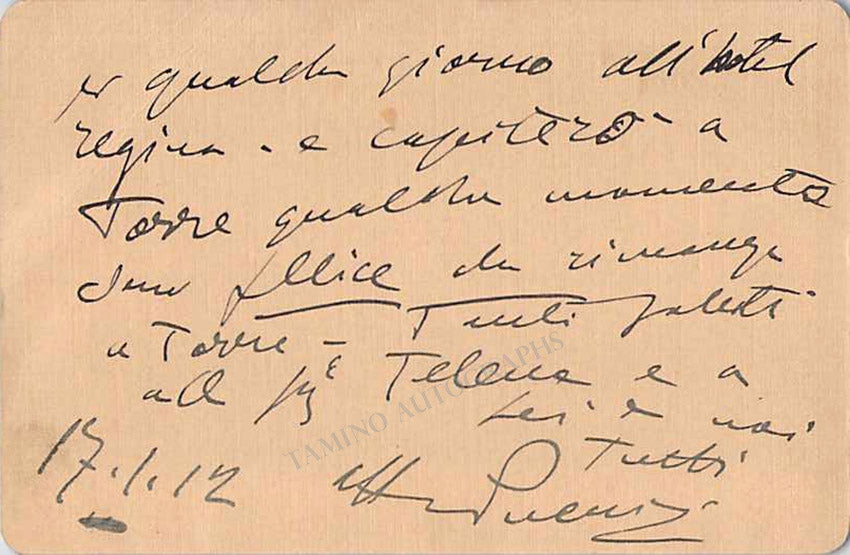 per qualche giorno all'hotel
regina - e capiterò a
Torre qualche momento
sono felice che rimanga
a Torre - Tanti saluti
alla Sig.
e a
Lei e noi
tutti
17.1.12 aff Puccini
TAMINO AUTOGRAPHS